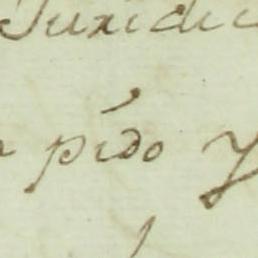 Juridic
pido y